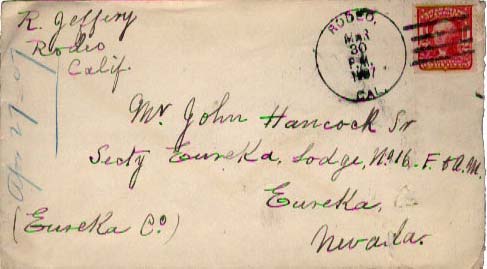 R. Jeffery
Rodeo
Calif.
RODEO,
MAR
30
P.M.
1907
CAL.
Apr 27-07
Mr John Hancock Sr
Secty Eureka, Lodge, No. 16 - F & A. M.
Eureka,
(Eureka Co)
Nevada.